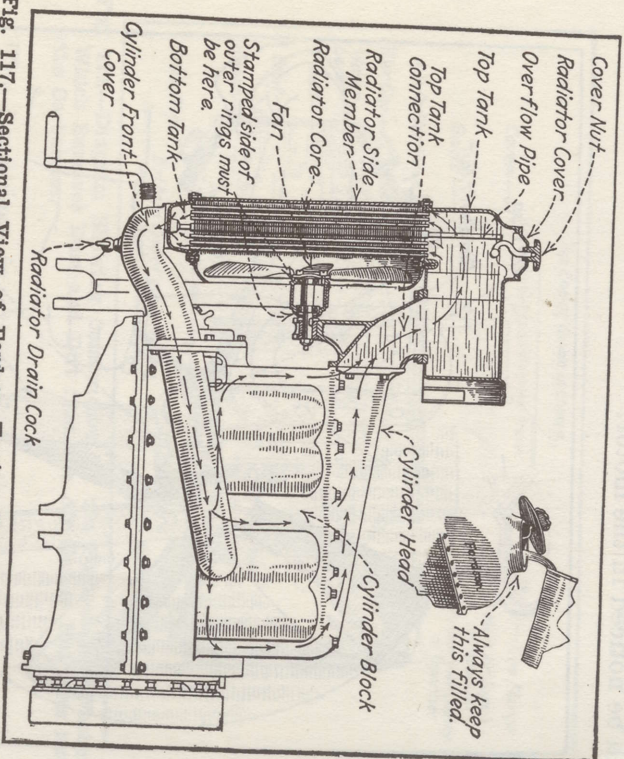 Cover Nut
Radiator Cover
Overflow Pipe
Top Tank
Top Tank
Connection
Radiator Side
Member
Radiator Core
Fan
Stamped side of
outer rings must
be here.
Bottom Tank
Cylinder Front
Cover
Radiator Drain Cock
Cylinder Head
Cylinder Block
Fordson
Always keep
this filled.
Fig. 117.—Sectional View of